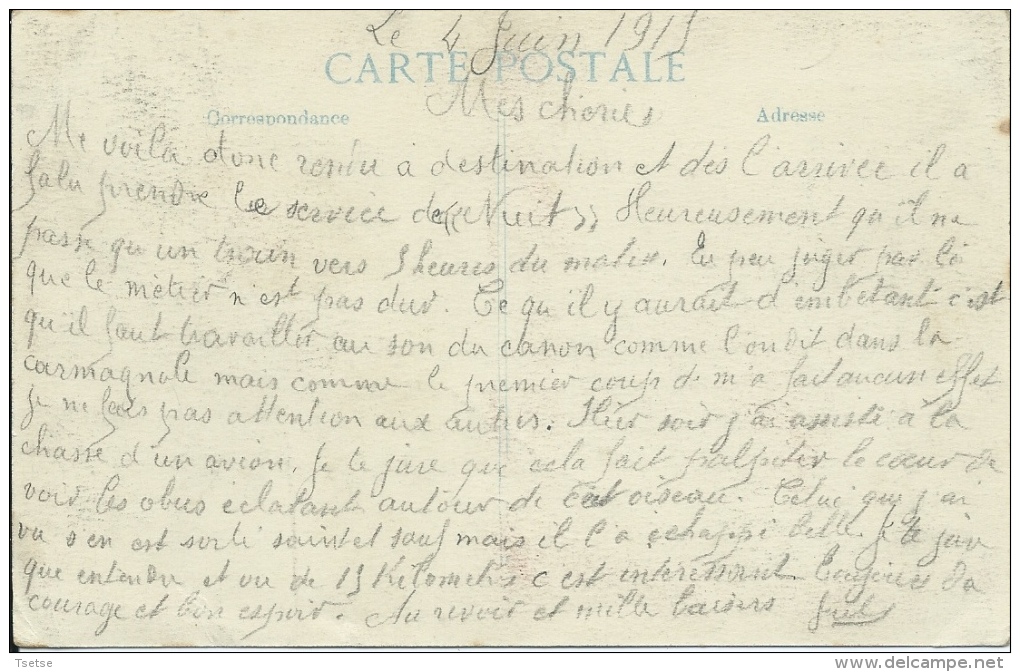 Le 4 Juin 1915
CARTE POSTALE
Mes chéries
Correspondance
Adresse
Me voila donc rendu à destination et dès l'arrivée il a
falu prendre le service de «Nuit» Heureusement qu'il ne
passe qu'un train vers 3 heures du matin. Tu peu juger par là
que le métier n'est pas dur. Ce qu'il y aurait d'embêtant c'est
qu'il faut travailler au son du canon comme l'on dit dans la
carmagnole mais comme le premier coup de m'a fait aucun effet
je ne fais pas attention aux autres. Hier soir j'ai assisté à la
chasse d'un avion. Je te jure que cela fait palpiter le cœur de
voir les obus éclatant autour de cet oiseau. Celui que j'ai
vu s'en est sorti saint et sauf mais il l'a échappé belle. Je te jure
que entendu et vu de 15 Kilometres c'est intéressant. Toujours du
courage et bon espoir. Au revoir et mille baisers Jules
Tsetse
www.delcampe.net